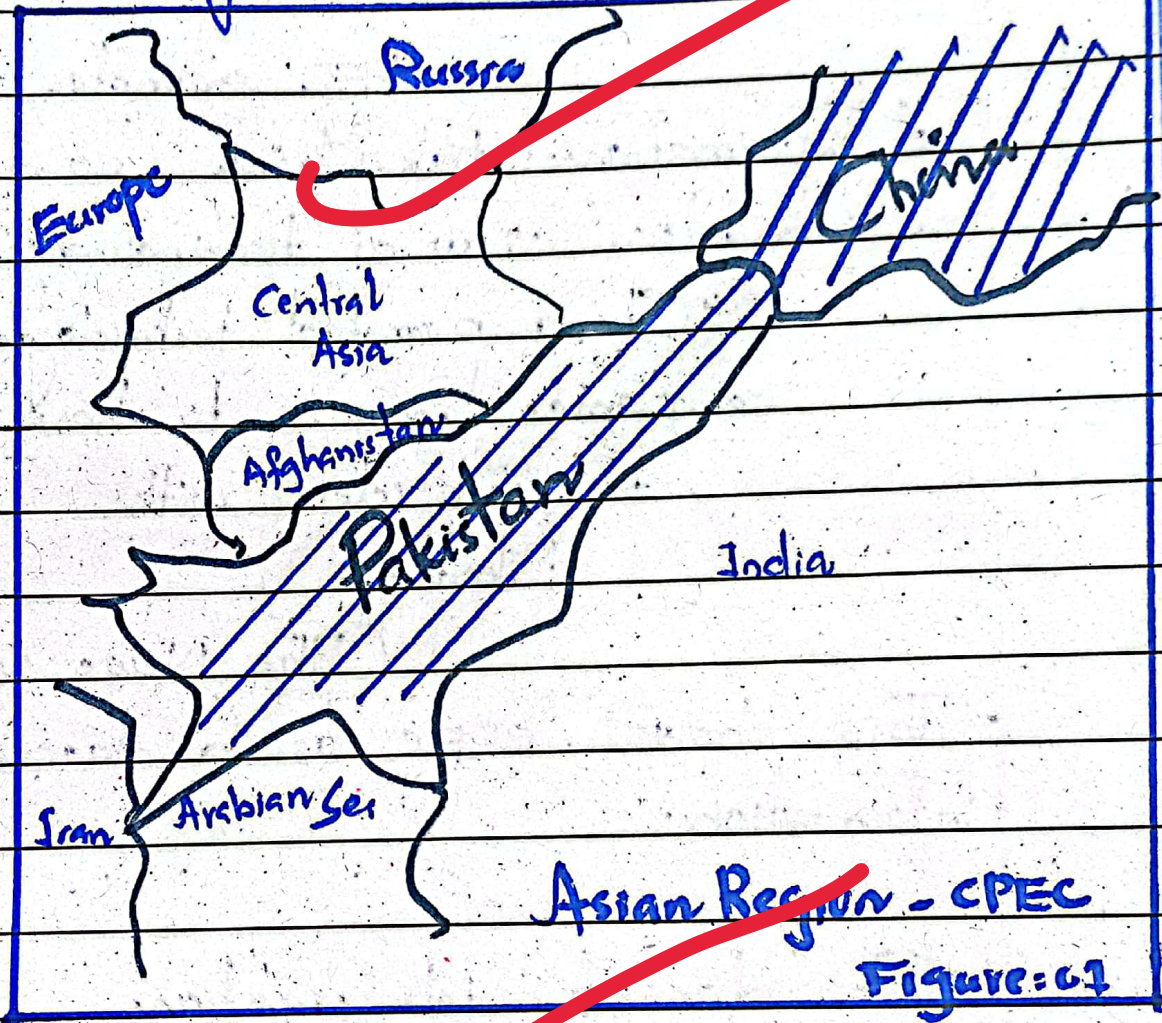 Russia
Europe
China
Central
Asia
Afghanistan
Pakistan
India
Iran
Arabian Sea
Asian Region - CPEC
Figure:01